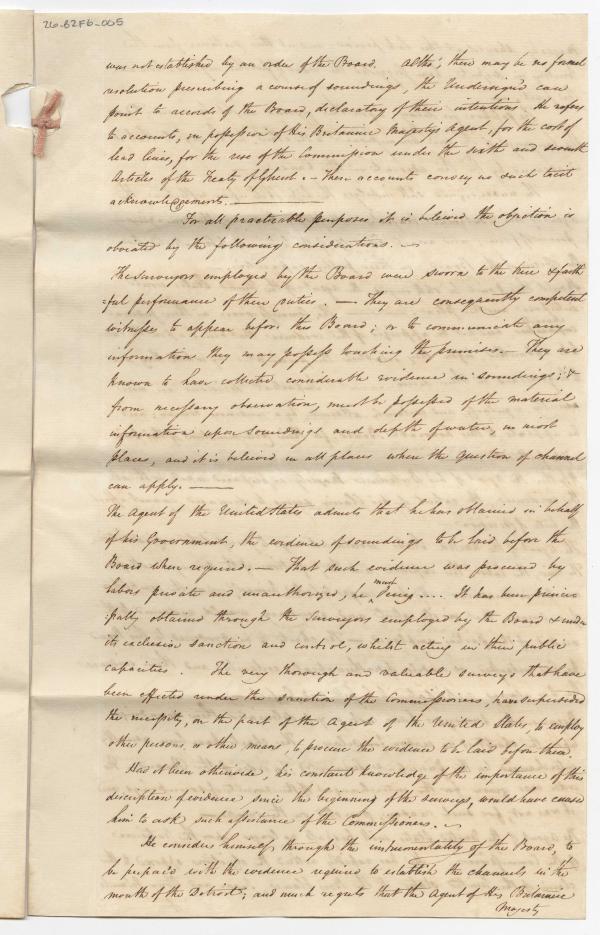 26-B2F6-005
was not established by an order of the Board. Altho', there may be no formal
resolution prescribing a course of soundings, the Undersign'd can
point to records of the Board, declaratory of their intentions. He refers
to accounts, in possession of His Britannic Majestys Agent, for the cost of
lead lines, for the use of the Commission under the sixth and seventh
Articles of the Treaty of Ghent. — These accounts convey no such tacit
acknowledgements. —
For all practicable purposes it is believed the objection is
obviated by the following considerations. —
The surveyors employed by the Board were sworn to the true & faith
=ful performance of their duties. — They are consequently competent
witnesses to appear before this Board; or to communicate any
information they may possess touching the premises. — They are
known to have collected considerable evidence in soundings; &
from necessary observation, must be possessed of the material
information upon soundings and depth of water, in most
places, and it is believed in all places where the question of channel
can apply. —
The Agent of the United States admits that he has obtained in behalf
of his Government, the evidence of soundings to be laid before the
Board when required. — That such evidence was procured by
labors private and unauthorized, he must deny.... It has been princi
:pally obtained through the Surveyors employed by the Board & under
its exclusive sanction and control, whilst acting in their public
capacities. The very thorough and valuable surveys that have
been effected under the sanction of the Commissioners, have superseded
the necessity, on the part of the Agent of the United States, to employ
other persons, or other means, to procure the evidence to be laid before them.
Had it been otherwise, his constant knowledge of the importance of this
description of evidence since the beginning of the surveys, would have caused
him to ask such assistance of the Commissioners. —
He considers himself, through the instrumentality of the Board, to
be prepar'd with the evidence required to establish the channels in the
mouth of the Detroit; and much regrets that the Agent of His Britannic
Majesty